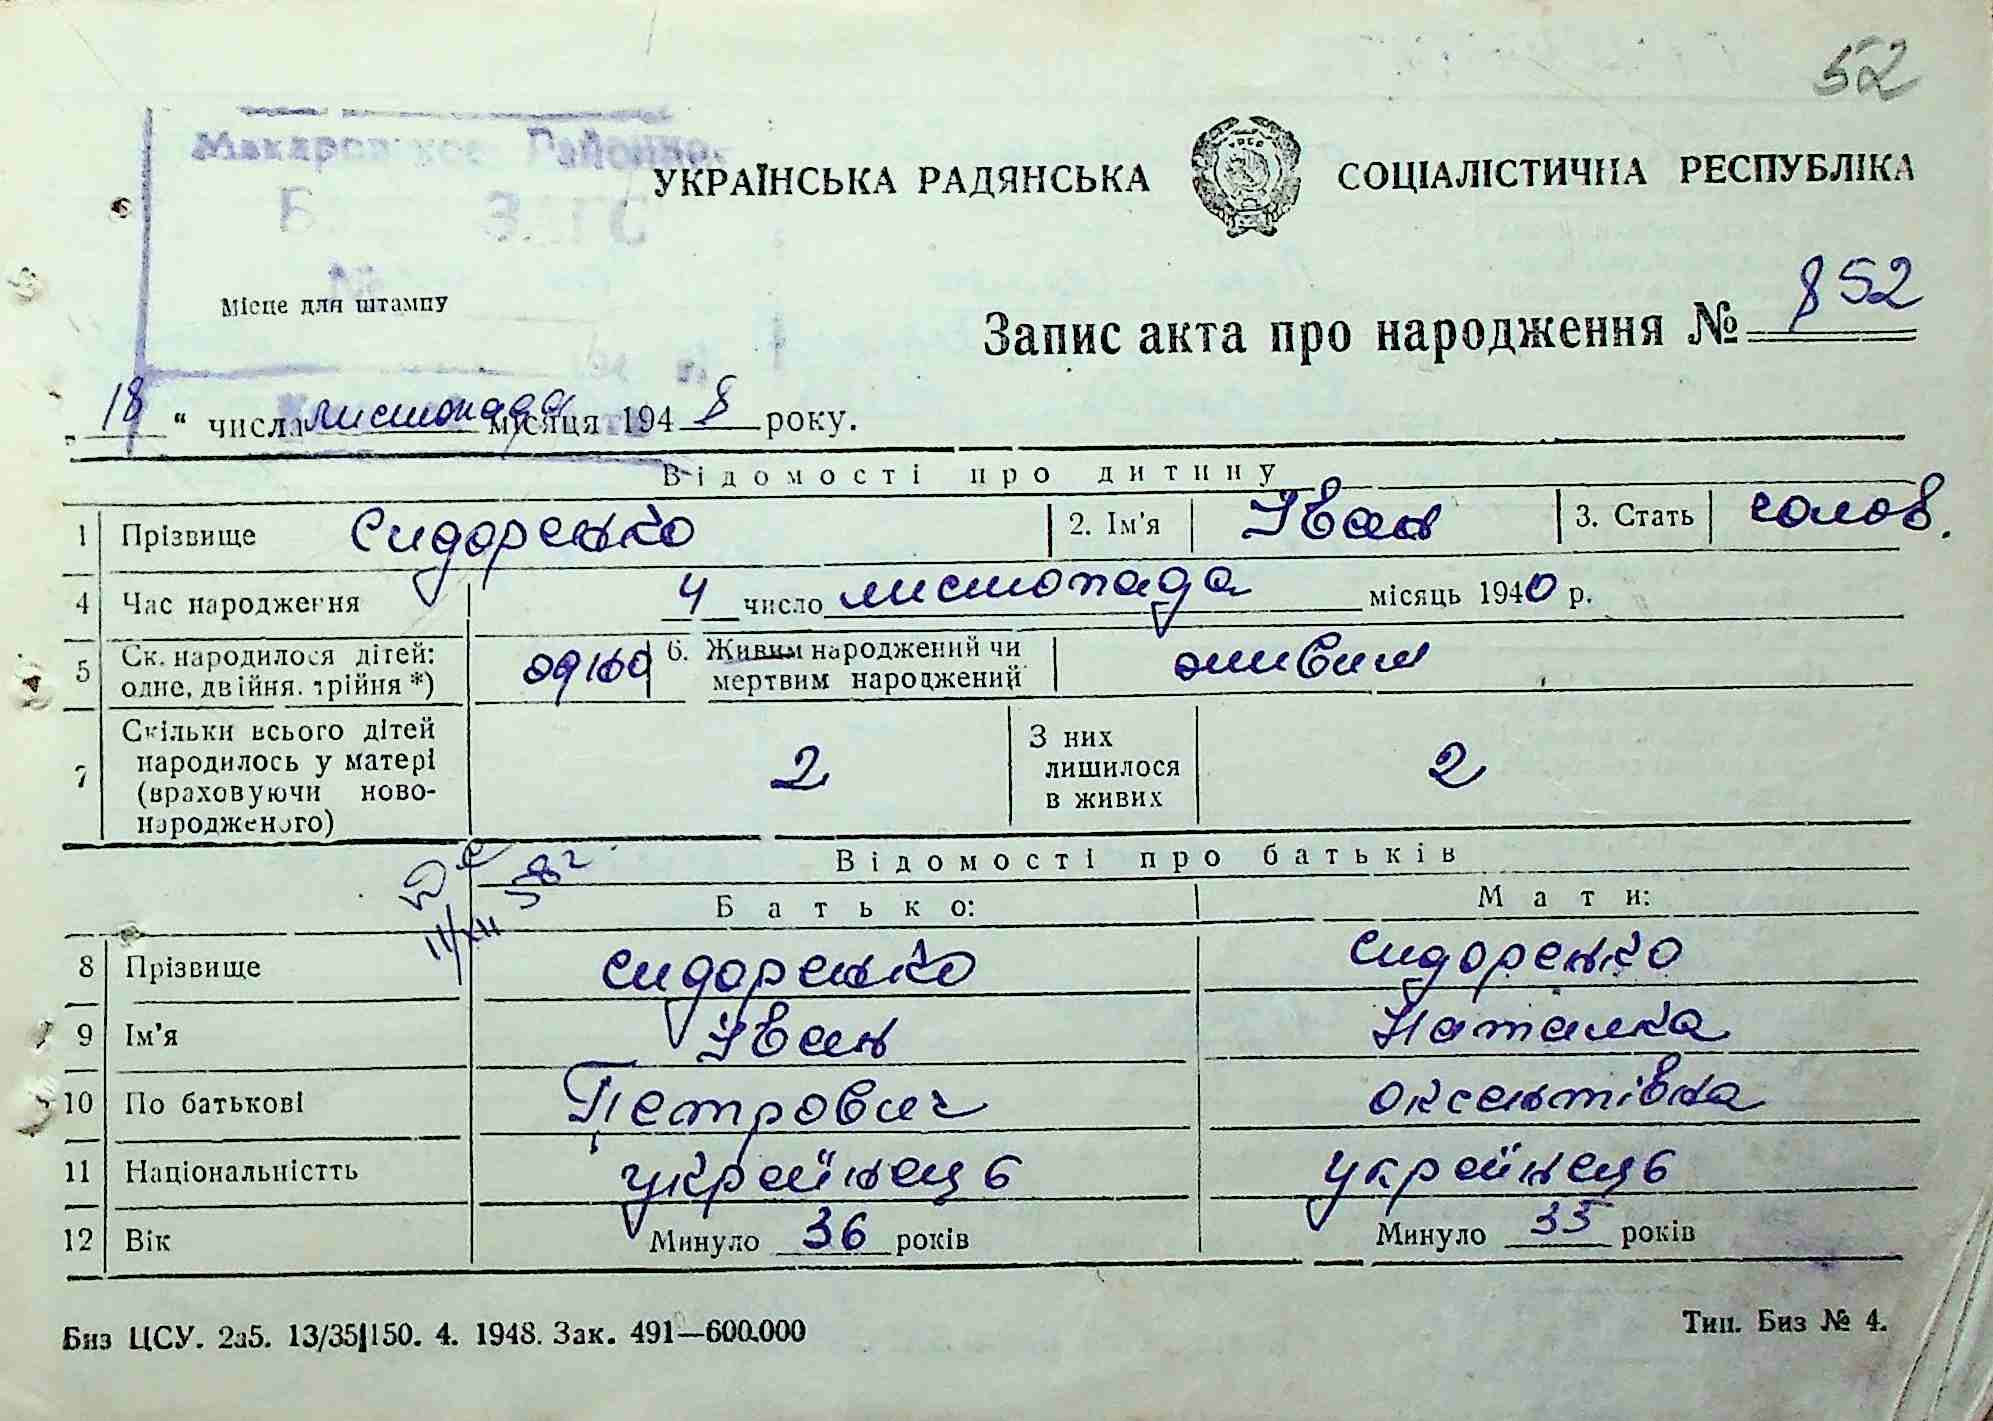 52
Районно
УКРАЇНСЬКА РАДЯНСЬКА СОЦІАЛІСТИЧНА РЕСПУБЛІКА
Місце для штампу
Запис акта про народження № 852
„ 18 “ числа листопада місяця 1948 року.
Відомості про дитину
1 Прізвище Сидоренко 2. Ім'я Іван 3. Стать чолов.
4 Час народження 4 число листопада місяць 1940 р.
5 Ск. народилося дітей: одне, двійня, трійня *) одно 6. Живим народжений чи мертвим народжений живим
7 Скільки всього дітей народилось у матері (враховуючи ново-народженого) 2 З них лишилося в живих 2
Відомості про батьків
Батько: Мати:
8 Прізвище Сидоренко Сидоренко
9 Ім'я Іван Наталка
10 По батькові Петрович Оксентівна
11 Національністть українець українець
12 Вік Минуло 36 років Минуло 33 років
Биз ЦСУ. 2а5. 13/35|150. 4. 1948. Зак. 491—600.000 Тип. Биз № 4.